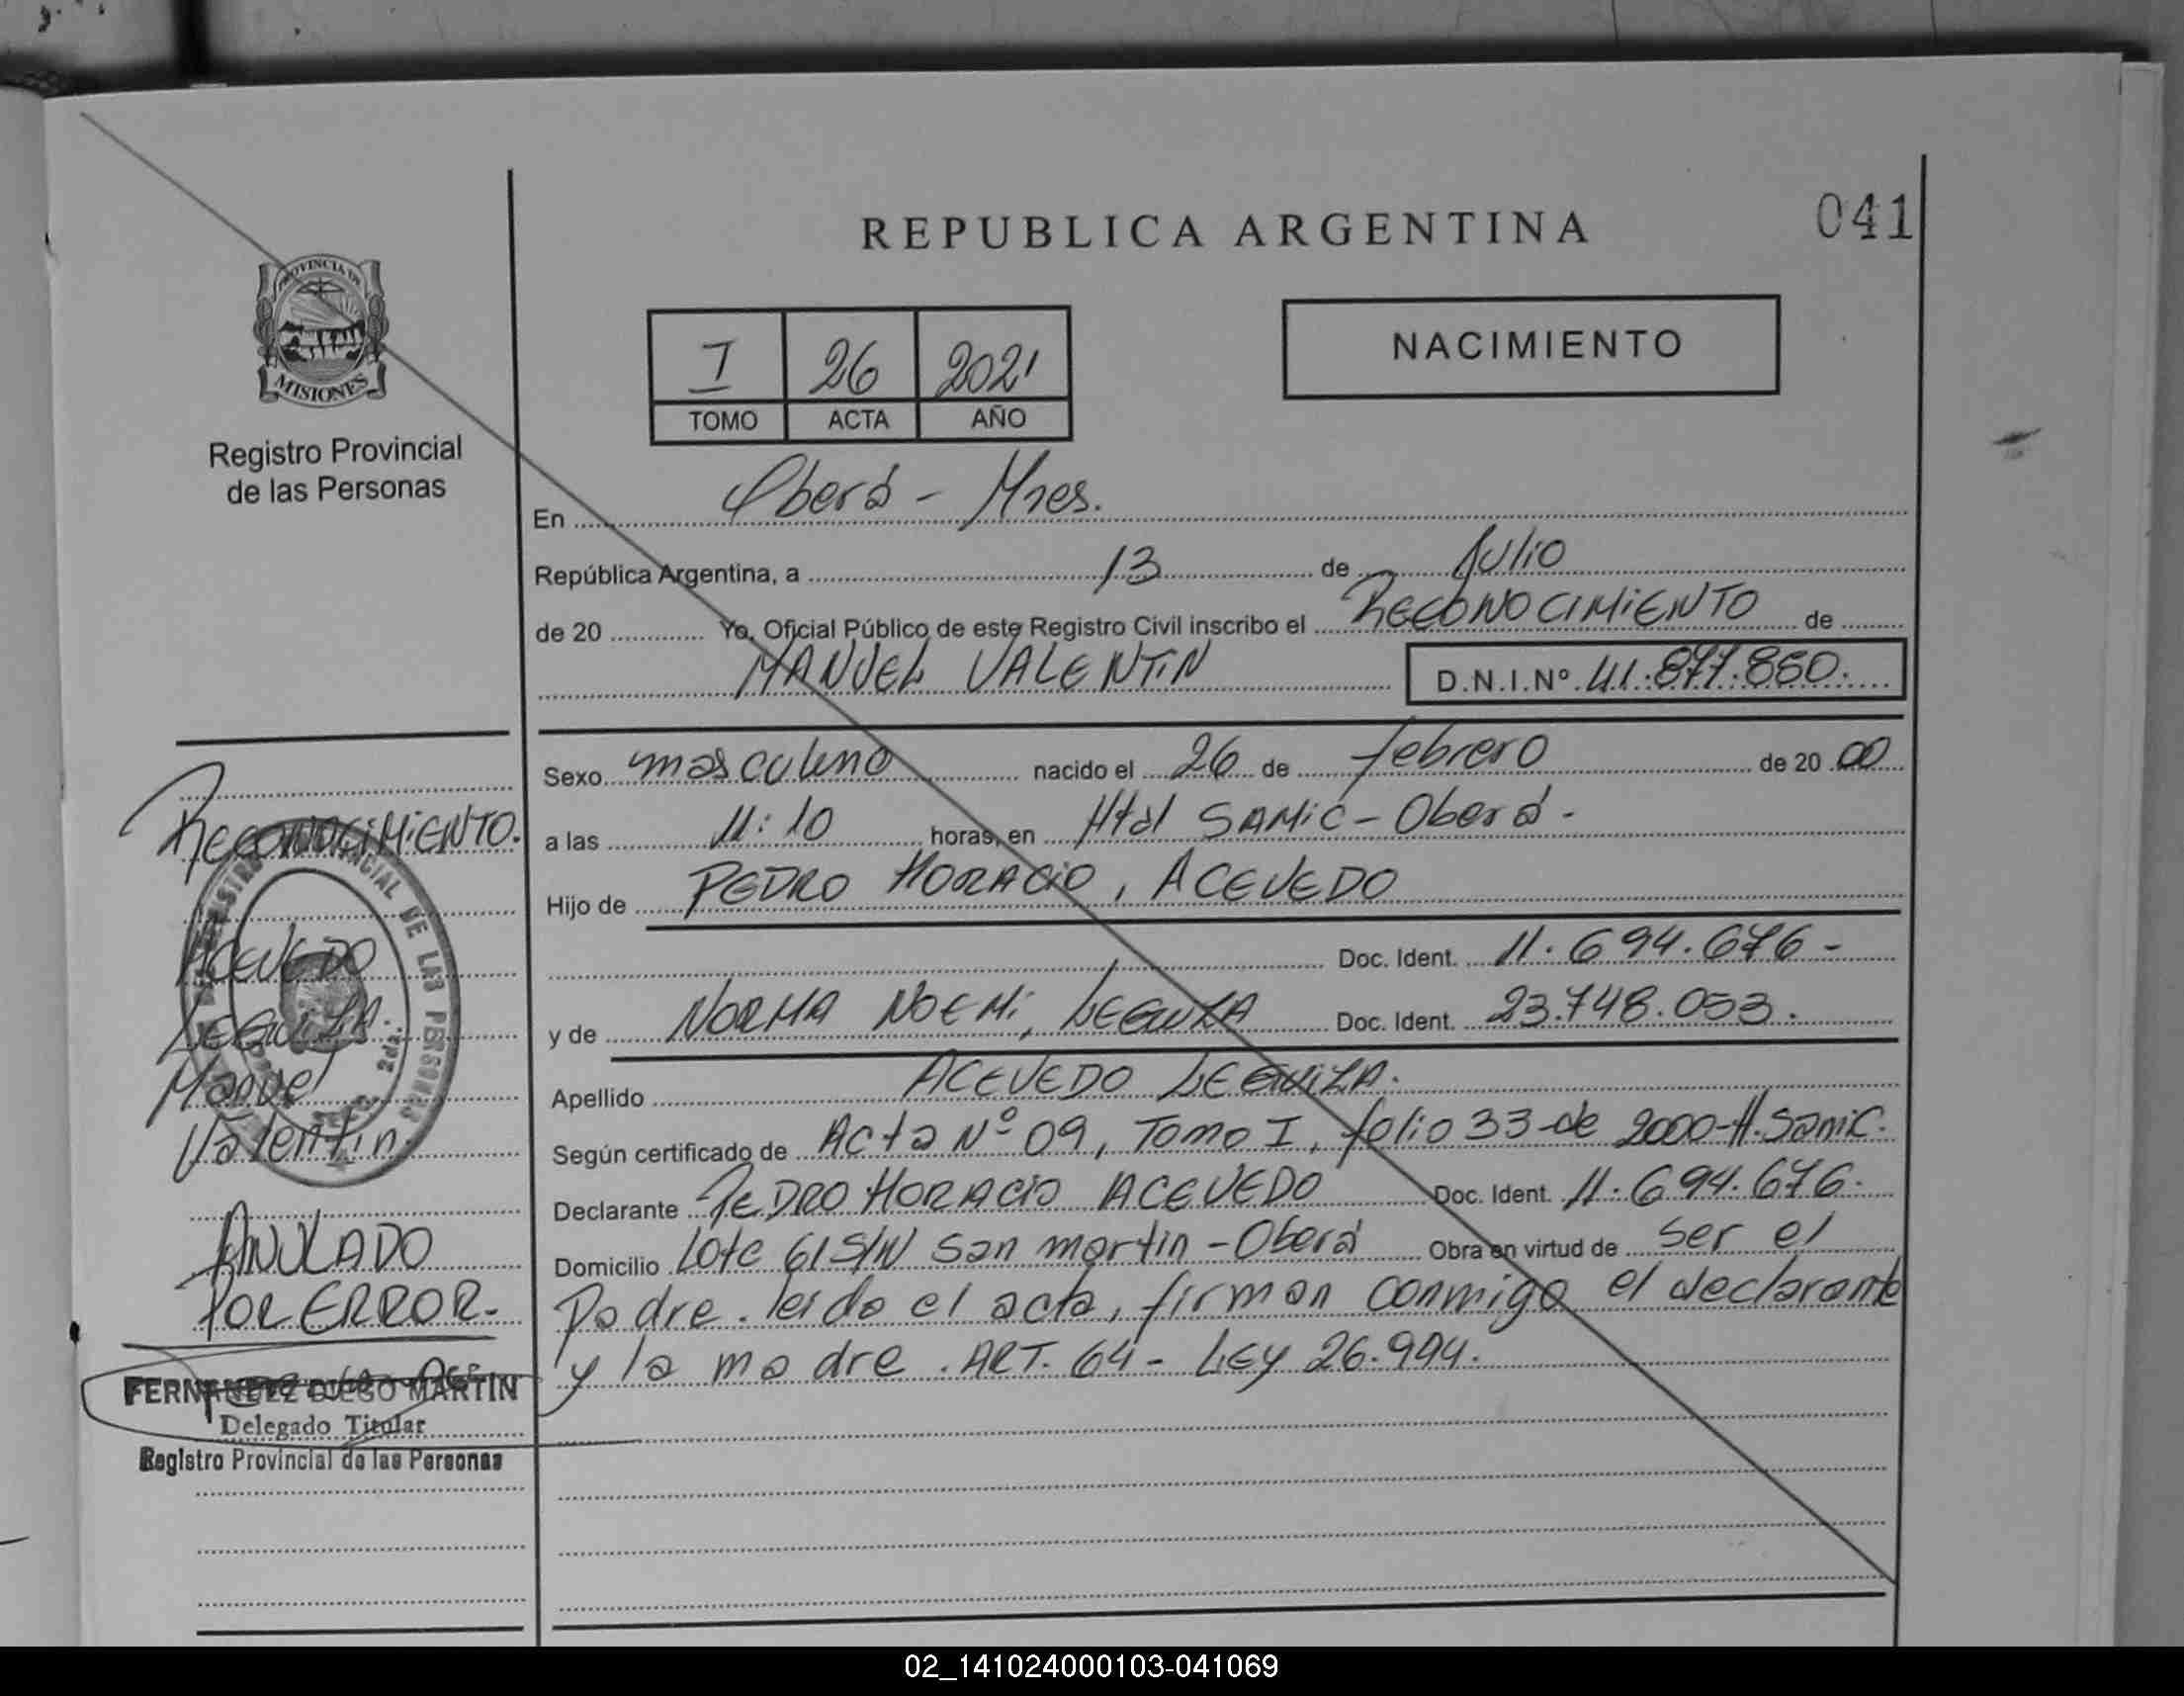 REPUBLICA ARGENTINA
041
PROVINCIA DE
MISIONES
Registro Provincial
de las Personas
I 26 2021
TOMO ACTA AÑO
NACIMIENTO
En Oberá - Mnes.
República Argentina, a 13 de Julio
de 20 Yo, Oficial Público de este Registro Civil inscribo el RECONOCIMIENTO de
MANUEL VALENTIN D.N.I.Nº 41.877.860.
Sexo masculino nacido el 26 de febrero de 20 00
a las 11:10 horas, en Htal SAMIC - Oberá -
Hijo de PEDRO HORACIO, ACEVEDO
Doc. Ident. 11.694.676-
y de NORMA NOEMI, LEGUIZA Doc. Ident. 23.748.053.
Apellido ACEVEDO LEGUIZA.
Según certificado de Acta Nº 09, Tomo I, folio 33 de 2000-H. Samic.
Declarante PEDRO HORACIO ACEVEDO Doc. Ident. 11.694.676.
Domicilio Lote 61 S/N San martin - Oberá Obra en virtud de ser el
Padre. leida el acta, firman conmigo el declarante
y la madre. ART. 64 - LEY 26.994.
RECONOCIMIENTO.
ACEVEDO
LEGUIZA.
Manuel
Valentin.
ANULADO
POR ERROR.
FERNANDEZ DIEGO MARTIN
Delegado Titular
Registro Provincial de las Personas
02_141024000103-041069